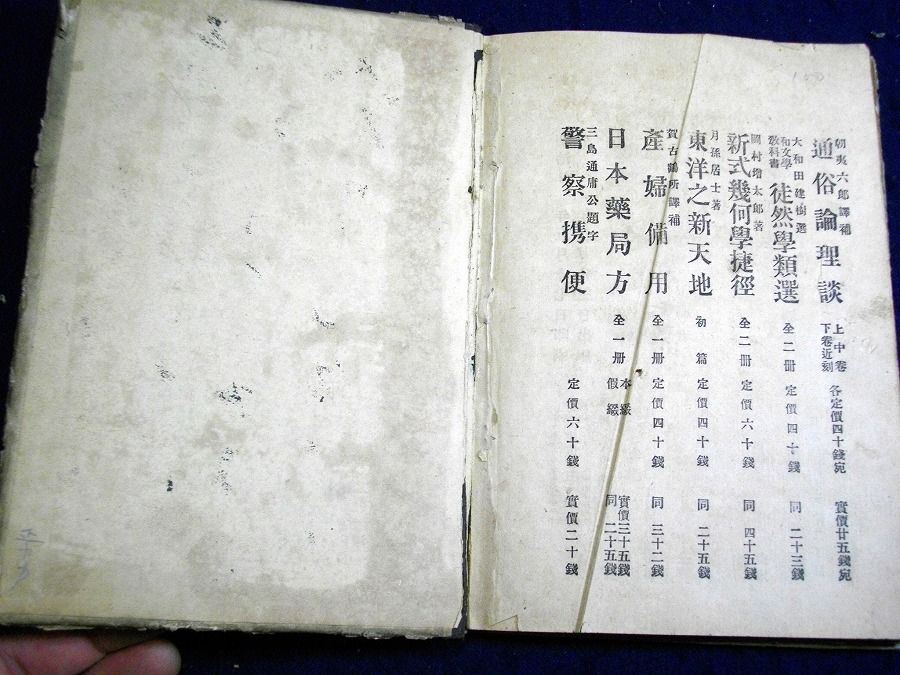 朝夷六郎譯補
通俗論理談 上中卷 下卷近刻 各定價四十錢宛 實價廿五錢宛
大和田建樹選
和文學教科書 徒然學類選 全二冊 定價四十錢 同 二十三錢
岡村增太郎著
新式幾何學捷徑 全二冊 定價六十錢 同 四十五錢
月孫居士著
東洋之新天地 初篇 定價四十錢 同 二十五錢
賀古鶴所譯補
產婦備用 全一册 定價四十錢 同 三十二錢
日本藥局方 全一册 本綴 假綴 實價三十五錢 同 二十五錢
三島通庸公題字
警察携便 定價六十錢 實價二十錢